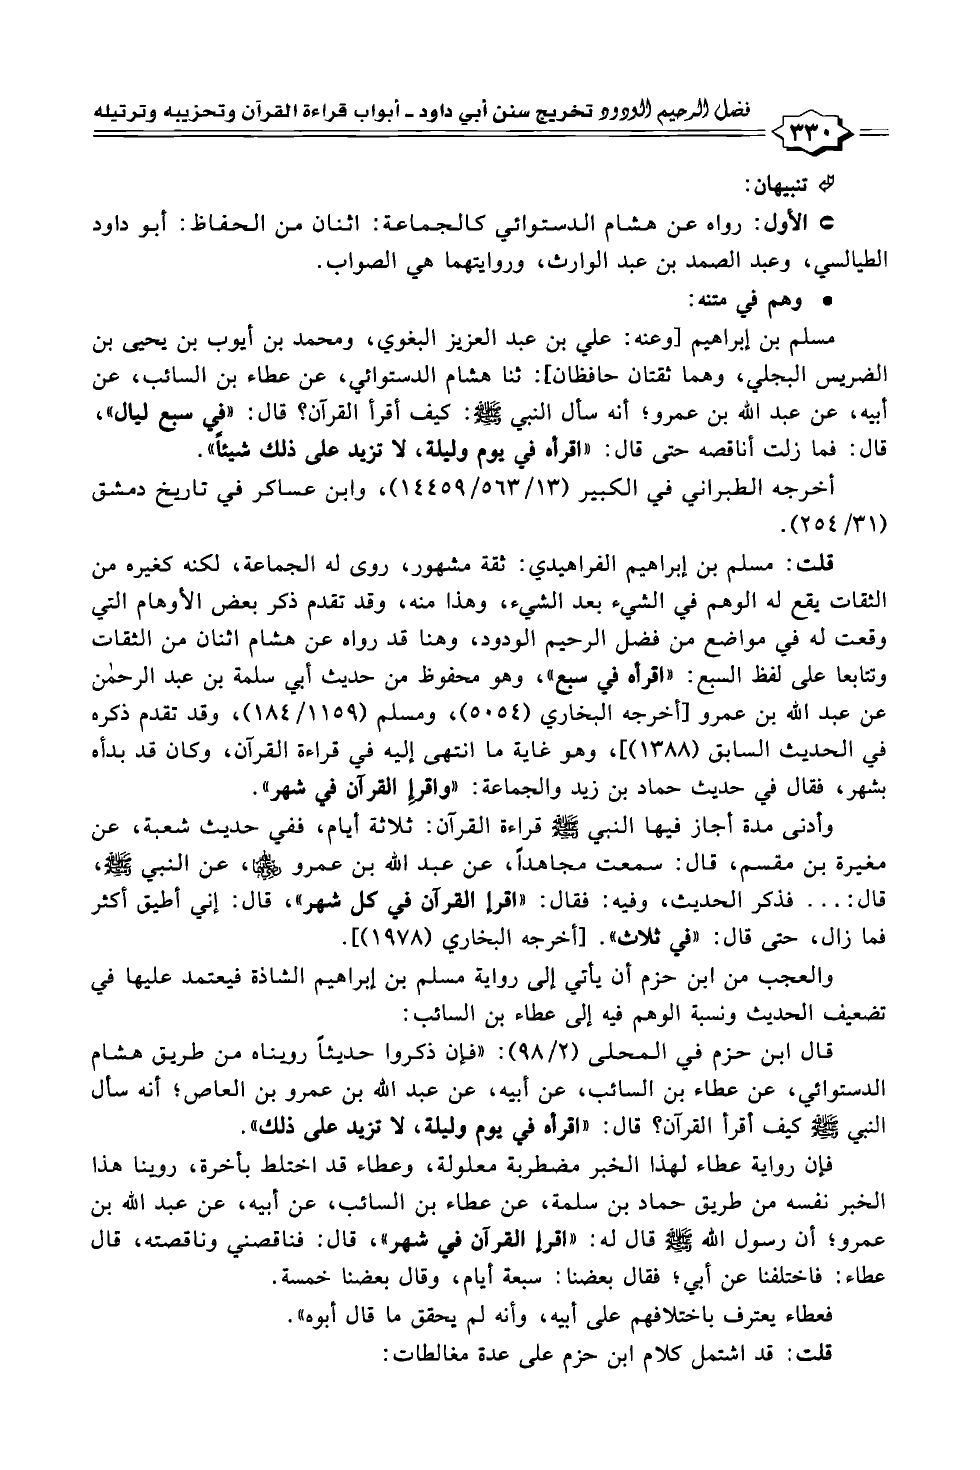 ٣٣٠ فضل الرحيم الودود تخريج سنن أبي داود ـ أبواب قراءة القرآن وتحزيبه وترتيله
تنبيهان:
الأول: رواه عن هشام الدستوائي كالجماعة: اثنان من الحفاظ: أبو داود
الطيالسي، وعبد الصمد بن عبد الوارث، وروايتهما هي الصواب.
• وهم في متنه:
مسلم بن إبراهيم [وعنه: علي بن عبد العزيز البغوي، ومحمد بن أيوب بن يحيى بن
الضريس البجلي، وهما ثقتان حافظان]: ثنا هشام الدستوائي، عن عطاء بن السائب، عن
أبيه، عن عبد الله بن عمرو؛ أنه سأل النبي ﷺ: كيف أقرأ القرآن؟ قال: «في سبع ليال»،
قال: فما زلت أناقصه حتى قال: «اقرأه في يوم وليلة، لا تزيد على ذلك شيئاً».
أخرجه الطبراني في الكبير (١٣/٥٦٣/١٤٤٥٩)، وابن عساكر في تاريخ دمشق
(٣١/٢٥٤).
قلت: مسلم بن إبراهيم الفراهيدي: ثقة مشهور، روى له الجماعة، لكنه كغيره من
الثقات يقع له الوهم في الشيء بعد الشيء، وهذا منه، وقد تقدم ذكر بعض الأوهام التي
وقعت له في مواضع من فضل الرحيم الودود، وهنا قد رواه عن هشام اثنان من الثقات
وتتابعا على لفظ السبع: «اقرأه في سبع»، وهو محفوظ من حديث أبي سلمة بن عبد الرحمٰن
عن عبد الله بن عمرو [أخرجه البخاري (٥٠٥٤)، ومسلم (١١٥٩/١٨٤)، وقد تقدم ذكره
في الحديث السابق (١٣٨٨)]، وهو غاية ما انتهى إليه في قراءة القرآن، وكان قد بدأه
بشهر، فقال في حديث حماد بن زيد والجماعة: «واقرإ القرآن في شهر».
وأدنى مدة أجاز فيها النبي ﷺ قراءة القرآن: ثلاثة أيام، ففي حديث شعبة، عن
مغيرة بن مقسم، قال: سمعت مجاهداً، عن عبد الله بن عمرو رضي الله عنهما، عن النبي ﷺ،
قال:... فذكر الحديث، وفيه: فقال: «اقرإ القرآن في كل شهر»، قال: إني أطيق أكثر
فما زال، حتى قال: «في ثلاث». [أخرجه البخاري (١٩٧٨)].
والعجب من ابن حزم أن يأتي إلى رواية مسلم بن إبراهيم الشاذة فيعتمد عليها في
تضعيف الحديث ونسبة الوهم فيه إلى عطاء بن السائب:
قال ابن حزم في المحلى (٩٨/٢): «فإن ذكروا حديثاً رويناه من طريق هشام
الدستوائي، عن عطاء بن السائب، عن أبيه، عن عبد الله بن عمرو بن العاص؛ أنه سأل
النبي ﷺ كيف أقرأ القرآن؟ قال: «اقرأه في يوم وليلة، لا تزيد على ذلك».
فإن رواية عطاء لهذا الخبر مضطربة معلولة، وعطاء قد اختلط بأخرة، روينا هذا
الخبر نفسه من طريق حماد بن سلمة، عن عطاء بن السائب، عن أبيه، عن عبد الله بن
عمرو؛ أن رسول الله ﷺ قال له: «اقرإ القرآن في شهر»، قال: فناقصني وناقصته، قال
عطاء: فاختلفنا عن أبي؛ فقال بعضنا: سبعة أيام، وقال بعضنا خمسة.
فعطاء يعترف باختلافهم على أبيه، وأنه لم يحقق ما قال أبوه».
قلت: قد اشتمل كلام ابن حزم على عدة مغالطات: